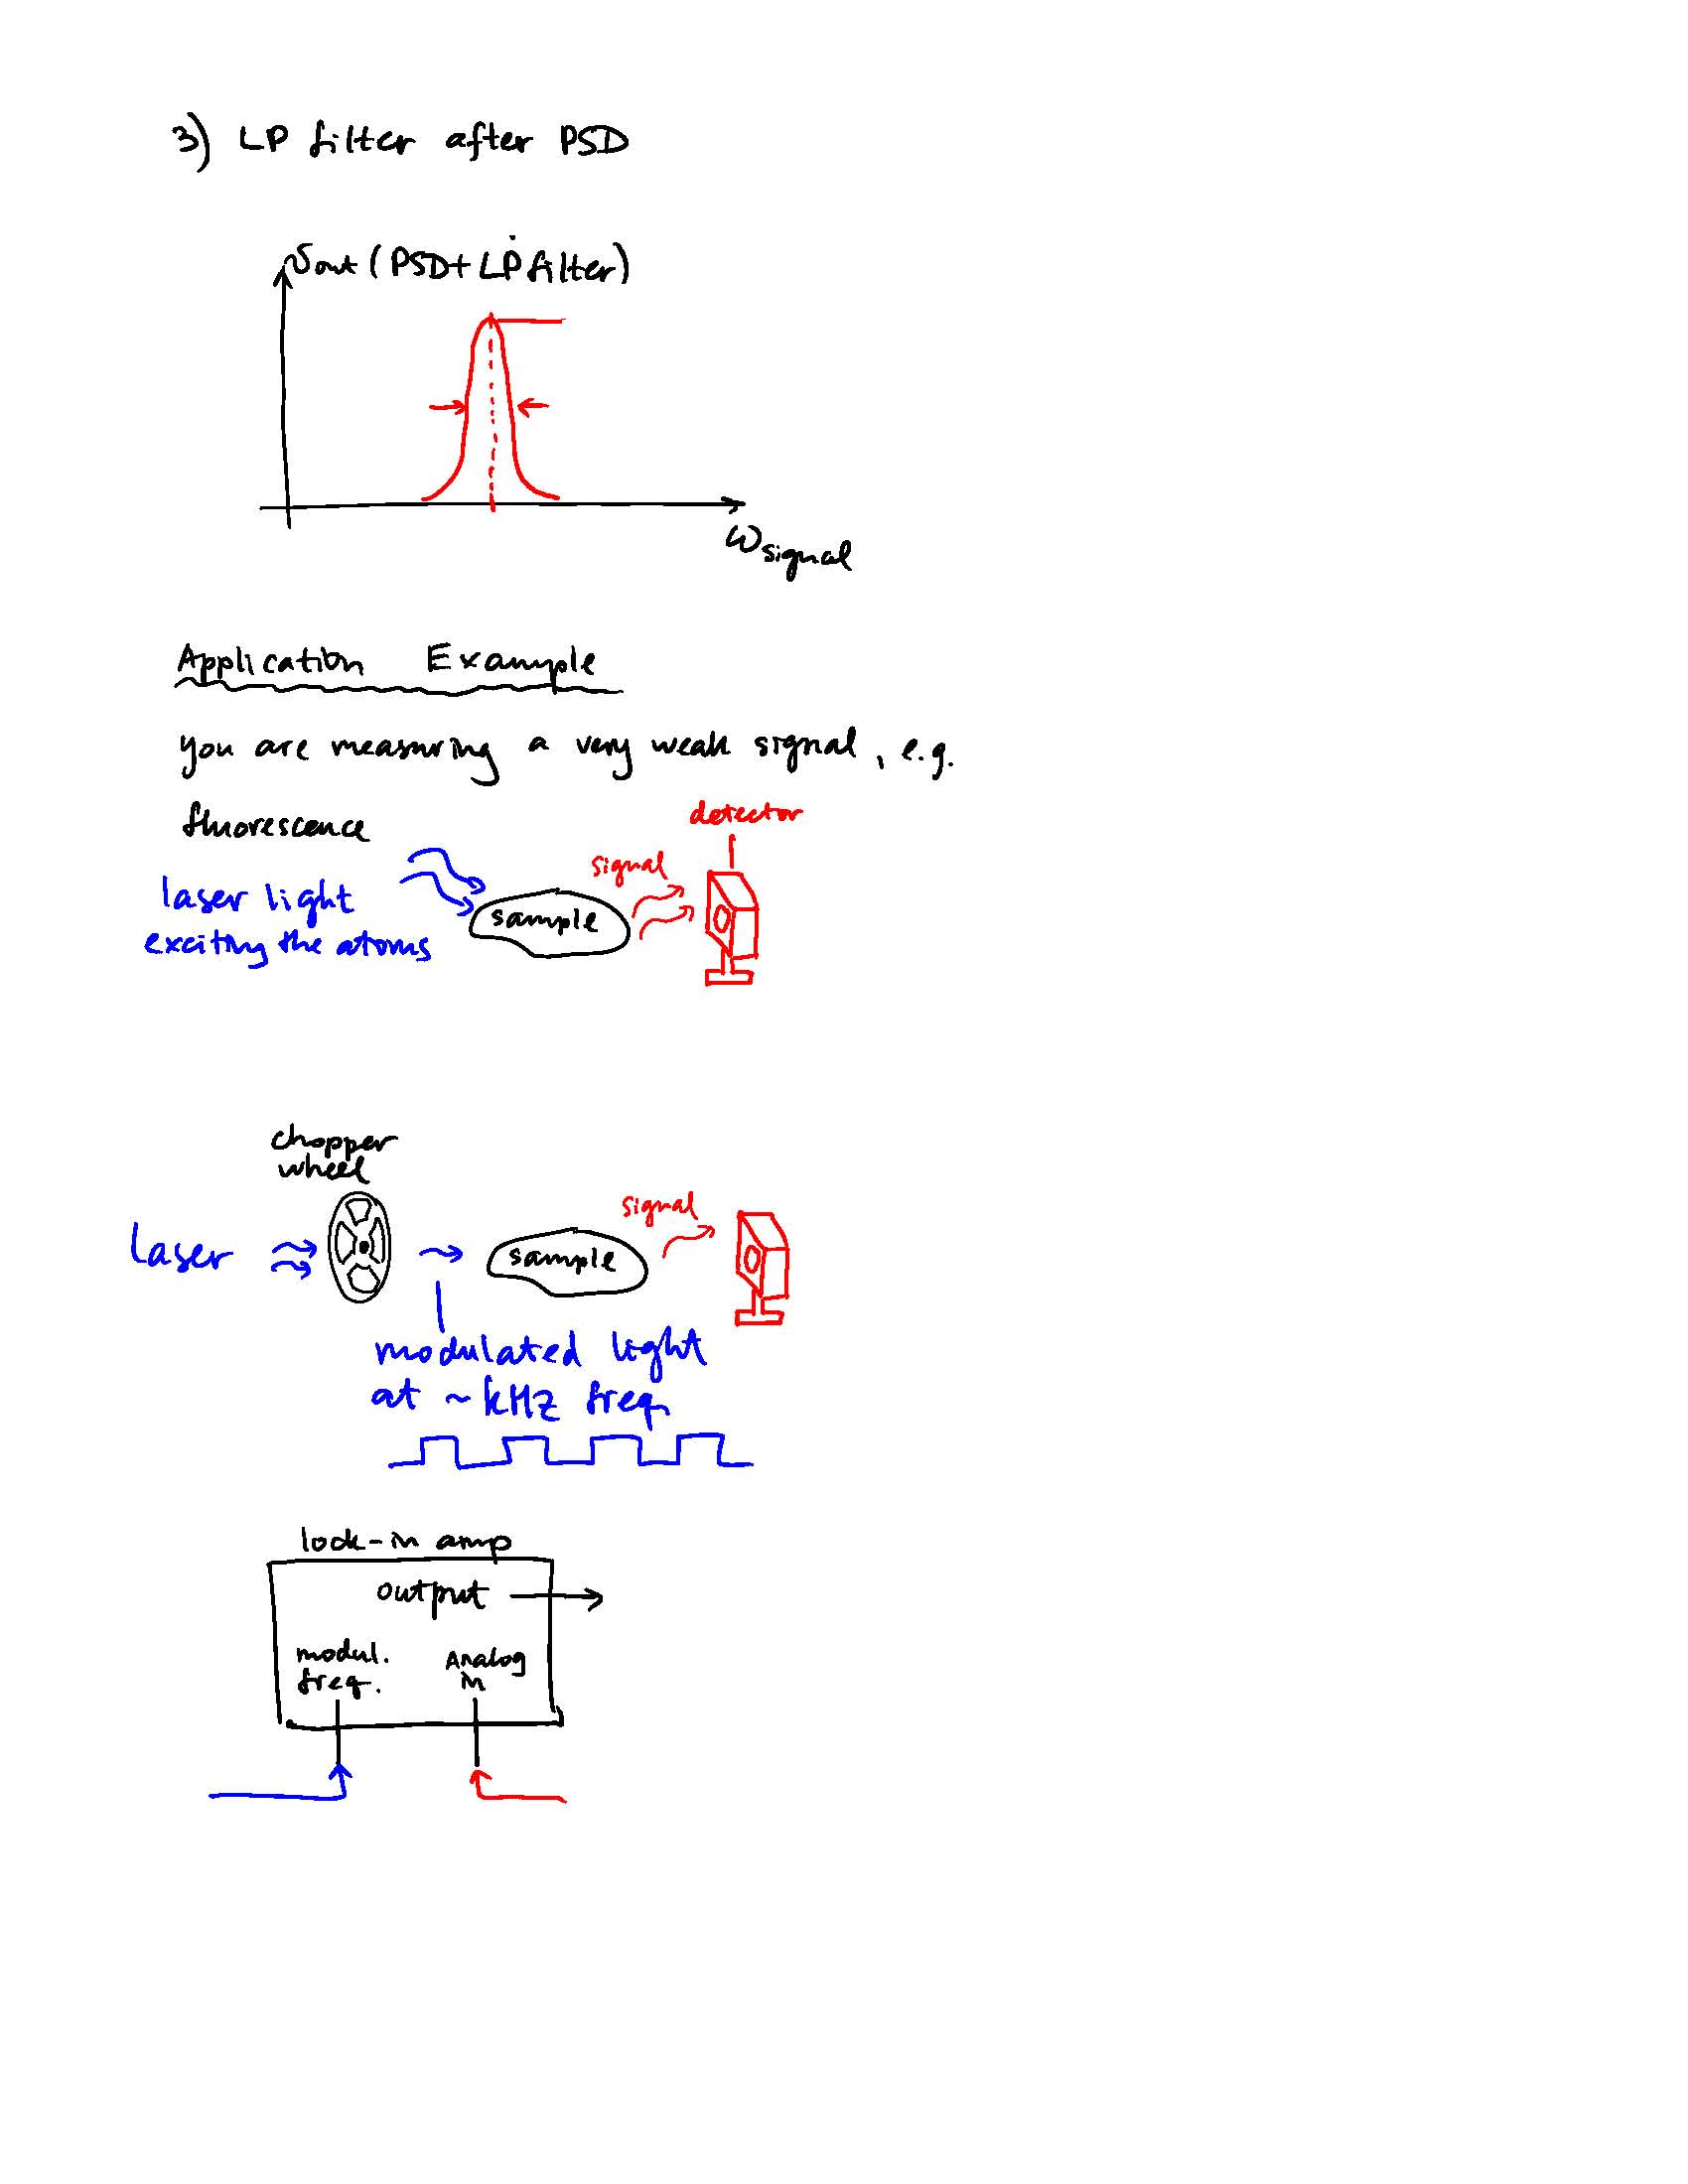 3) LP filter after PSD
vout (PSD + LP filter)
ωsignal
Application Example
you are measuring a very weak signal, e.g.
fluorescence
detector
signal
laser light
exciting the atoms
sample
chopper
wheel
signal
laser
sample
modulated light
at ~ kHz freq.
lock-in amp
output
modul.
freq.
Analog
in